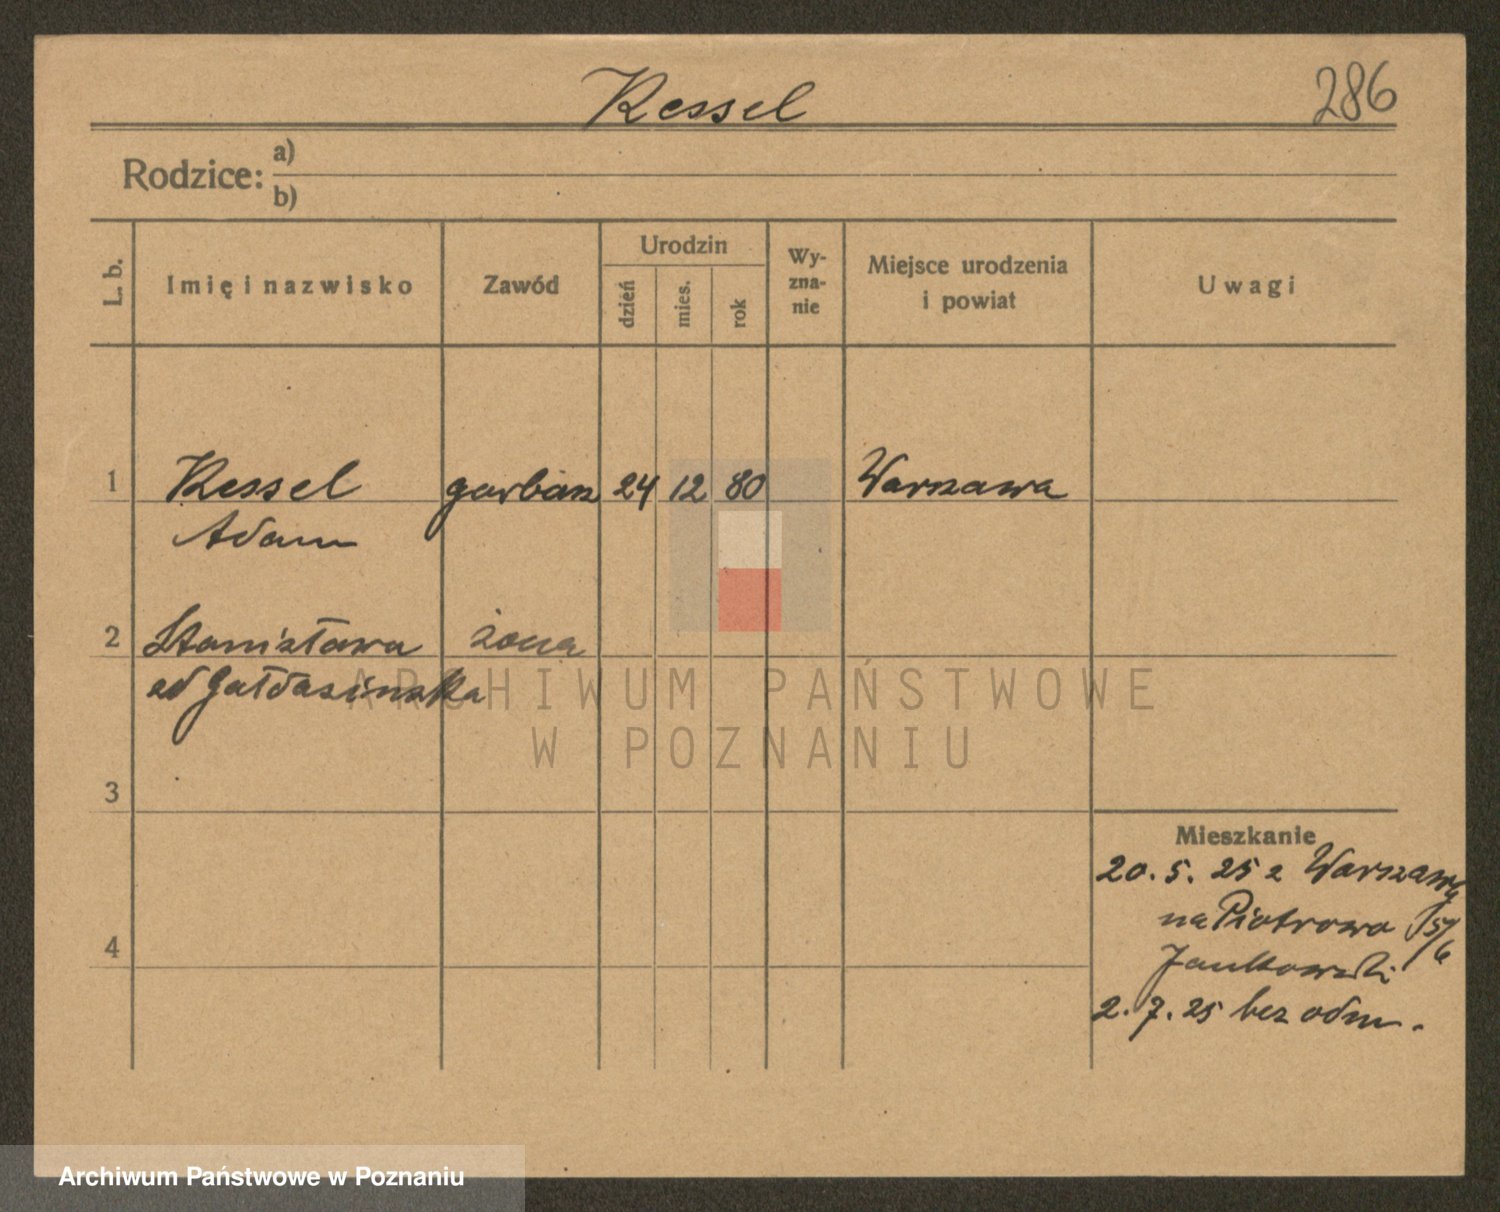 Kessel
286
Rodzice: a)
b)
L. b.
Imię i nazwisko
Zawód
Urodzin
dzień
mies.
rok
Wy-
zna-
nie
Miejsce urodzenia
i powiat
Uwagi
1 Kessel garbarz 24 12 80 Warszawa
Adam
2 Stanisława żona
od
3
4
Mieszkanie
20. 5. 25 z Warszawy
na Piotrowo 15/6
Jankowski
2. 7. 25 bez odm.
ARCHIWUM PAŃSTWOWE
W POZNANIU
Archiwum Państwowe w Poznaniu